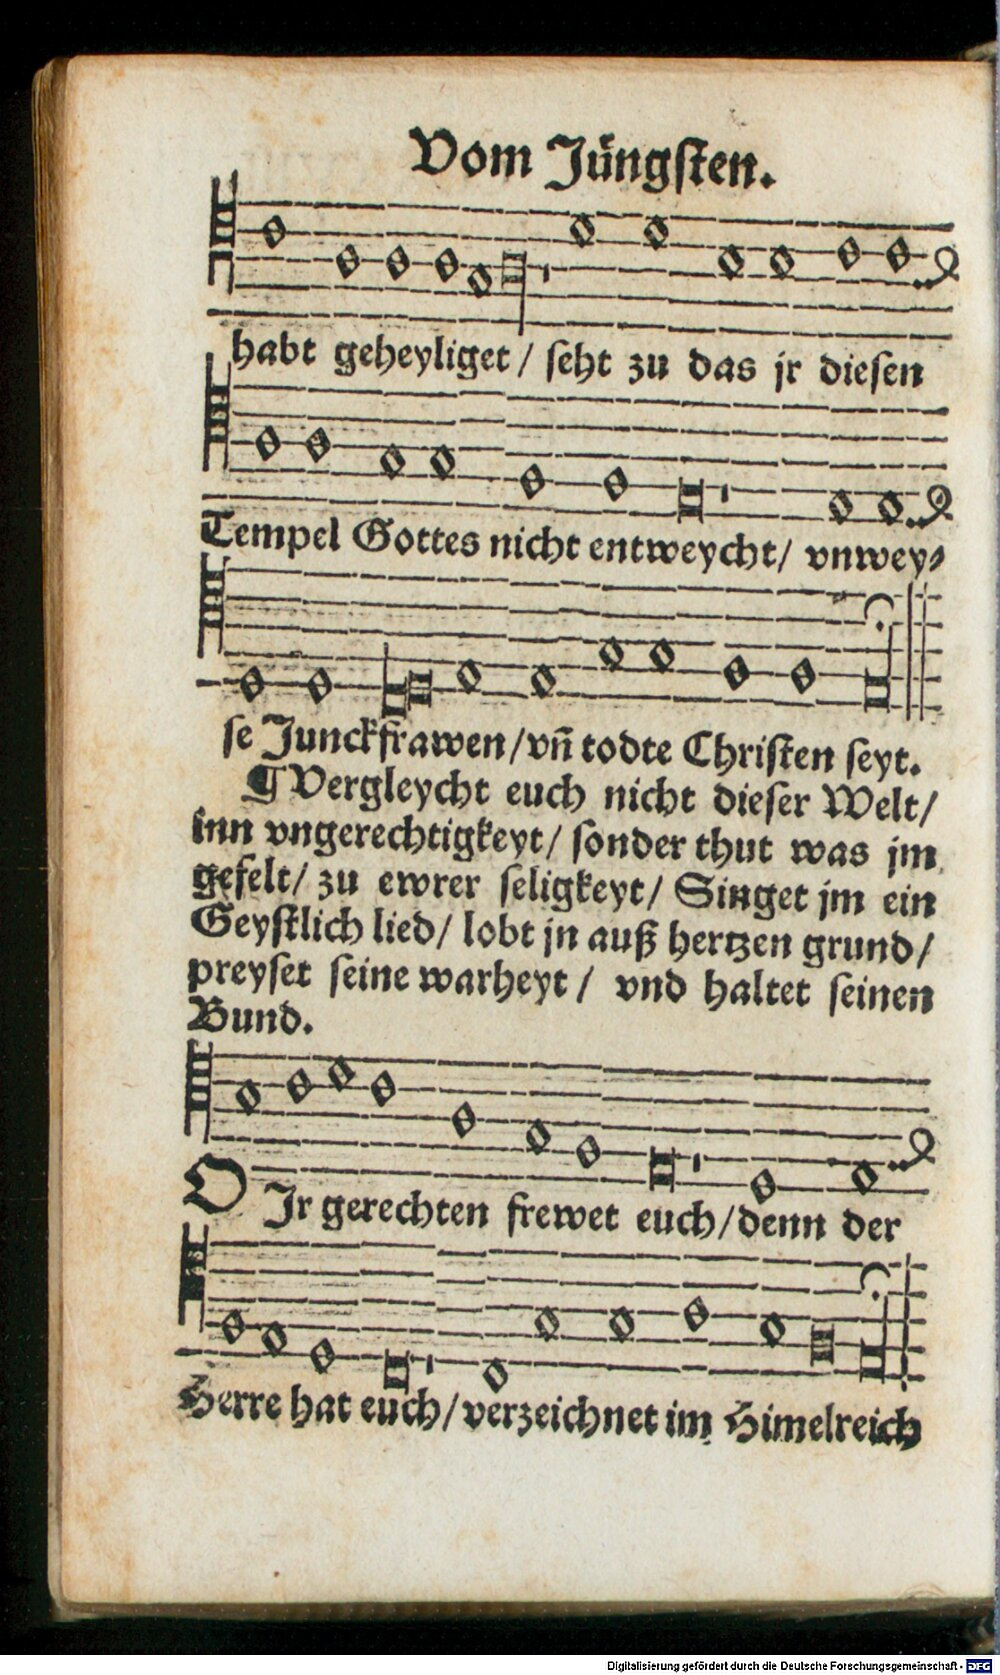 Vom Jüngsten.
habt geheyliget / seht zu das jr diesen
Tempel Gottes nicht entweycht / vnwey⸗
se Junckfrawen / vn̄ todte Christen seyt.
¶ Vergleycht euch nicht dieser Welt /
inn vngerechtigkeyt / sonder thut was jm
gefelt / zu ewrer seligkeyt / Singet jm ein
Geystlich lied / lobt jn auß hertzen grund /
preyset seine warheyt / vnd haltet seinen
Bund.
O Jr gerechten frewet euch / denn der
Herre hat euch / verzeichnet im Himelreich
Digitalisierung gefördert durch die Deutsche Forschungsgemeinschaft - DFG